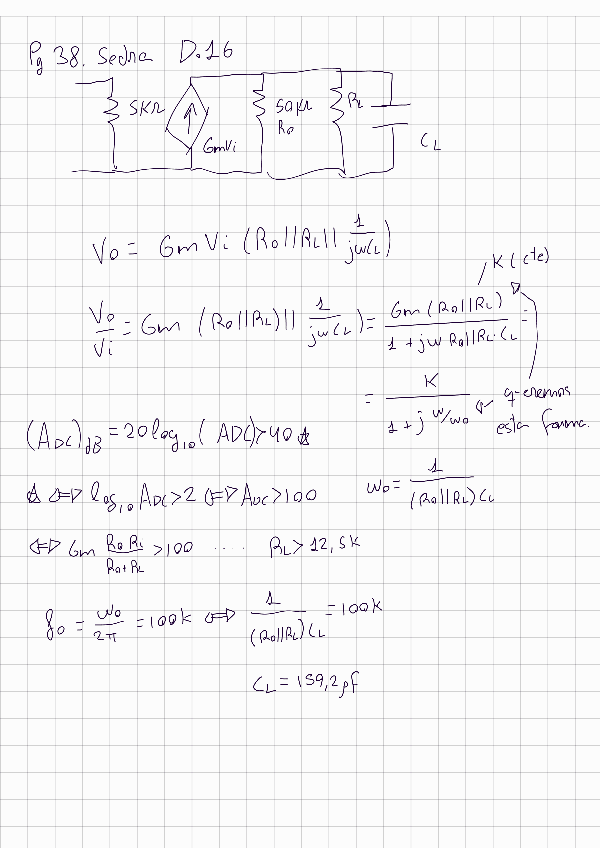 Pg 38. Sedra D.16
5KΩ
GmVi
50kΩ
Ro
RL
CL
Vo = GmVi (Ro||RL|| 1/jωCL)
K (cte)
Vo/Vi = Gm (Ro||RL)|| 1/jωCL) = Gm (Ro||RL) / 1 + jω Ro||RL·CL =
= K / 1 + j ω/ωo queremos
esta forma.
(ADC)dB = 20log10( ADC)>40 ☆
☆ <=> log10 ADC>2 <=> ADC>100
ωo = 1/(Ro||RL)CL
<=> Gm RoRL/Ro+RL >100 .... RL> 12,5k
fo = ωo/2π = 100k <=> 1/(Ro||RL)CL = 100k
CL = 159,2pf